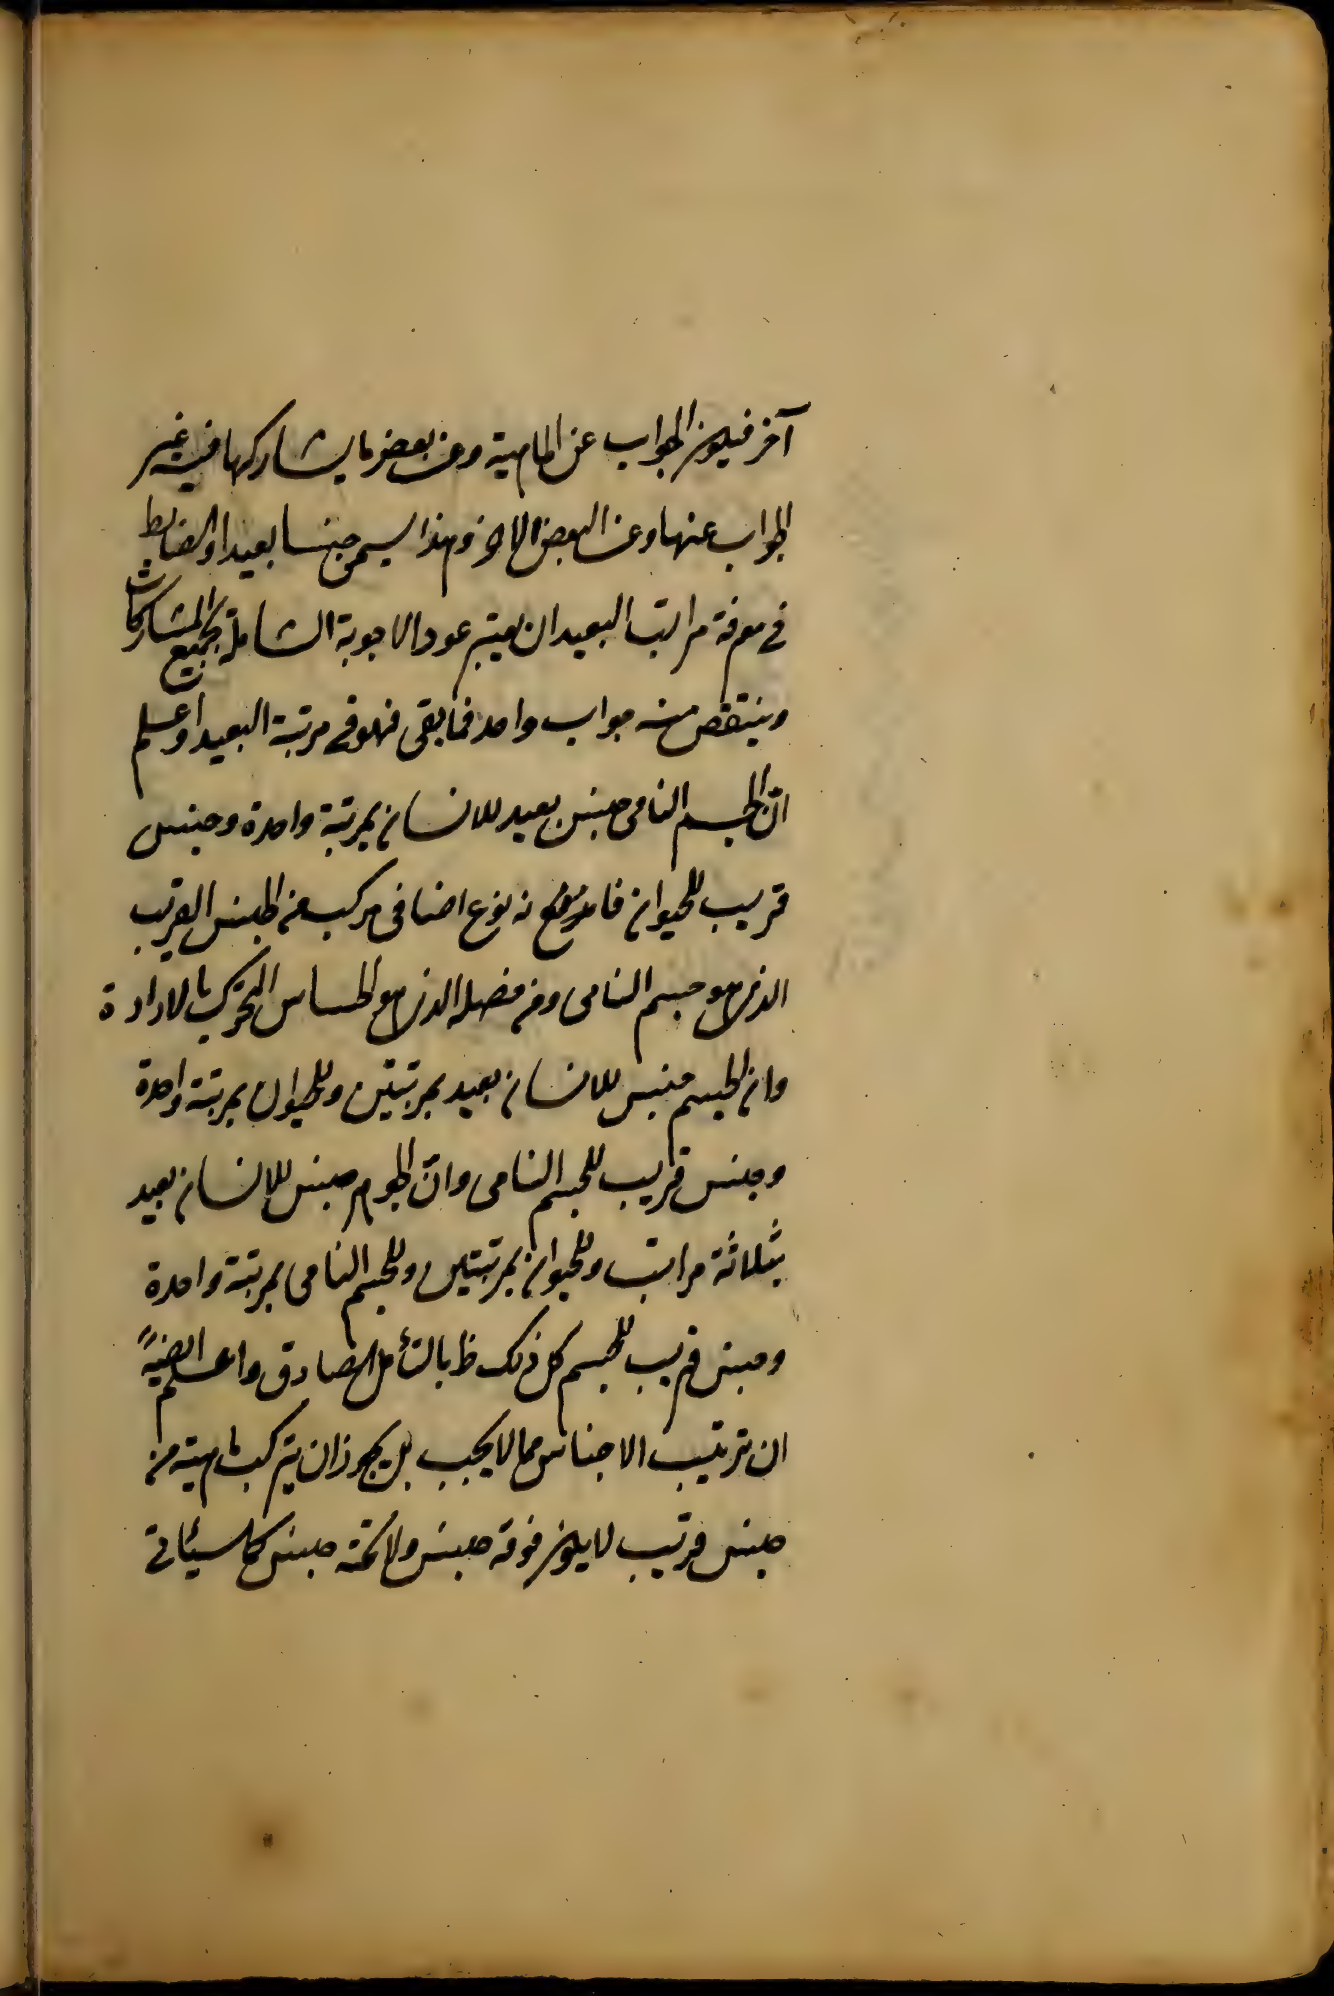 آخر فيكون الجواب عن الماهية وعن بعض ما يشاركها فيه غير
الجواب عنها وعن البعض الاخر وهذا يسمى جنسا بعيدا والضابط
في معرفة مراتب البعيد ان يعتبر عدد الاجوبة الشاملة لجميع المشاركات
وينتقص منه جواب واحد فما بقى فهو في مرتبة البعيد واعلم
انّ الجسم النامى جنس بعيد للانسان بمرتبة واحدة وجنس
قريب للحيوان نوع اضافى مركب من الجنس القريب
الذى هو جسم النامى ومن فصله الذى هو الحساس المتحرك بالارادة
وان الجسم جنس للانسان بعيد بمرتبتين وللحيوان بمرتبة واحدة
وجنس قريب للجسم النامى وانّ الجوهر جنس للانسان بعيد
بثلاثة مراتب وللحيوان بمرتبتين وللجسم النامى بمرتبة واحدة
وجنس قريب للجسم كل ذلك ظ بالتأمل الصادق واعلم ايضاً
ان ترتيب الاجناس مما لا يجب بل يجوز ان يتركب ماهية من
جنس قريب لا يكون فوقه جنس ولا تحته جنس كما سيأتى